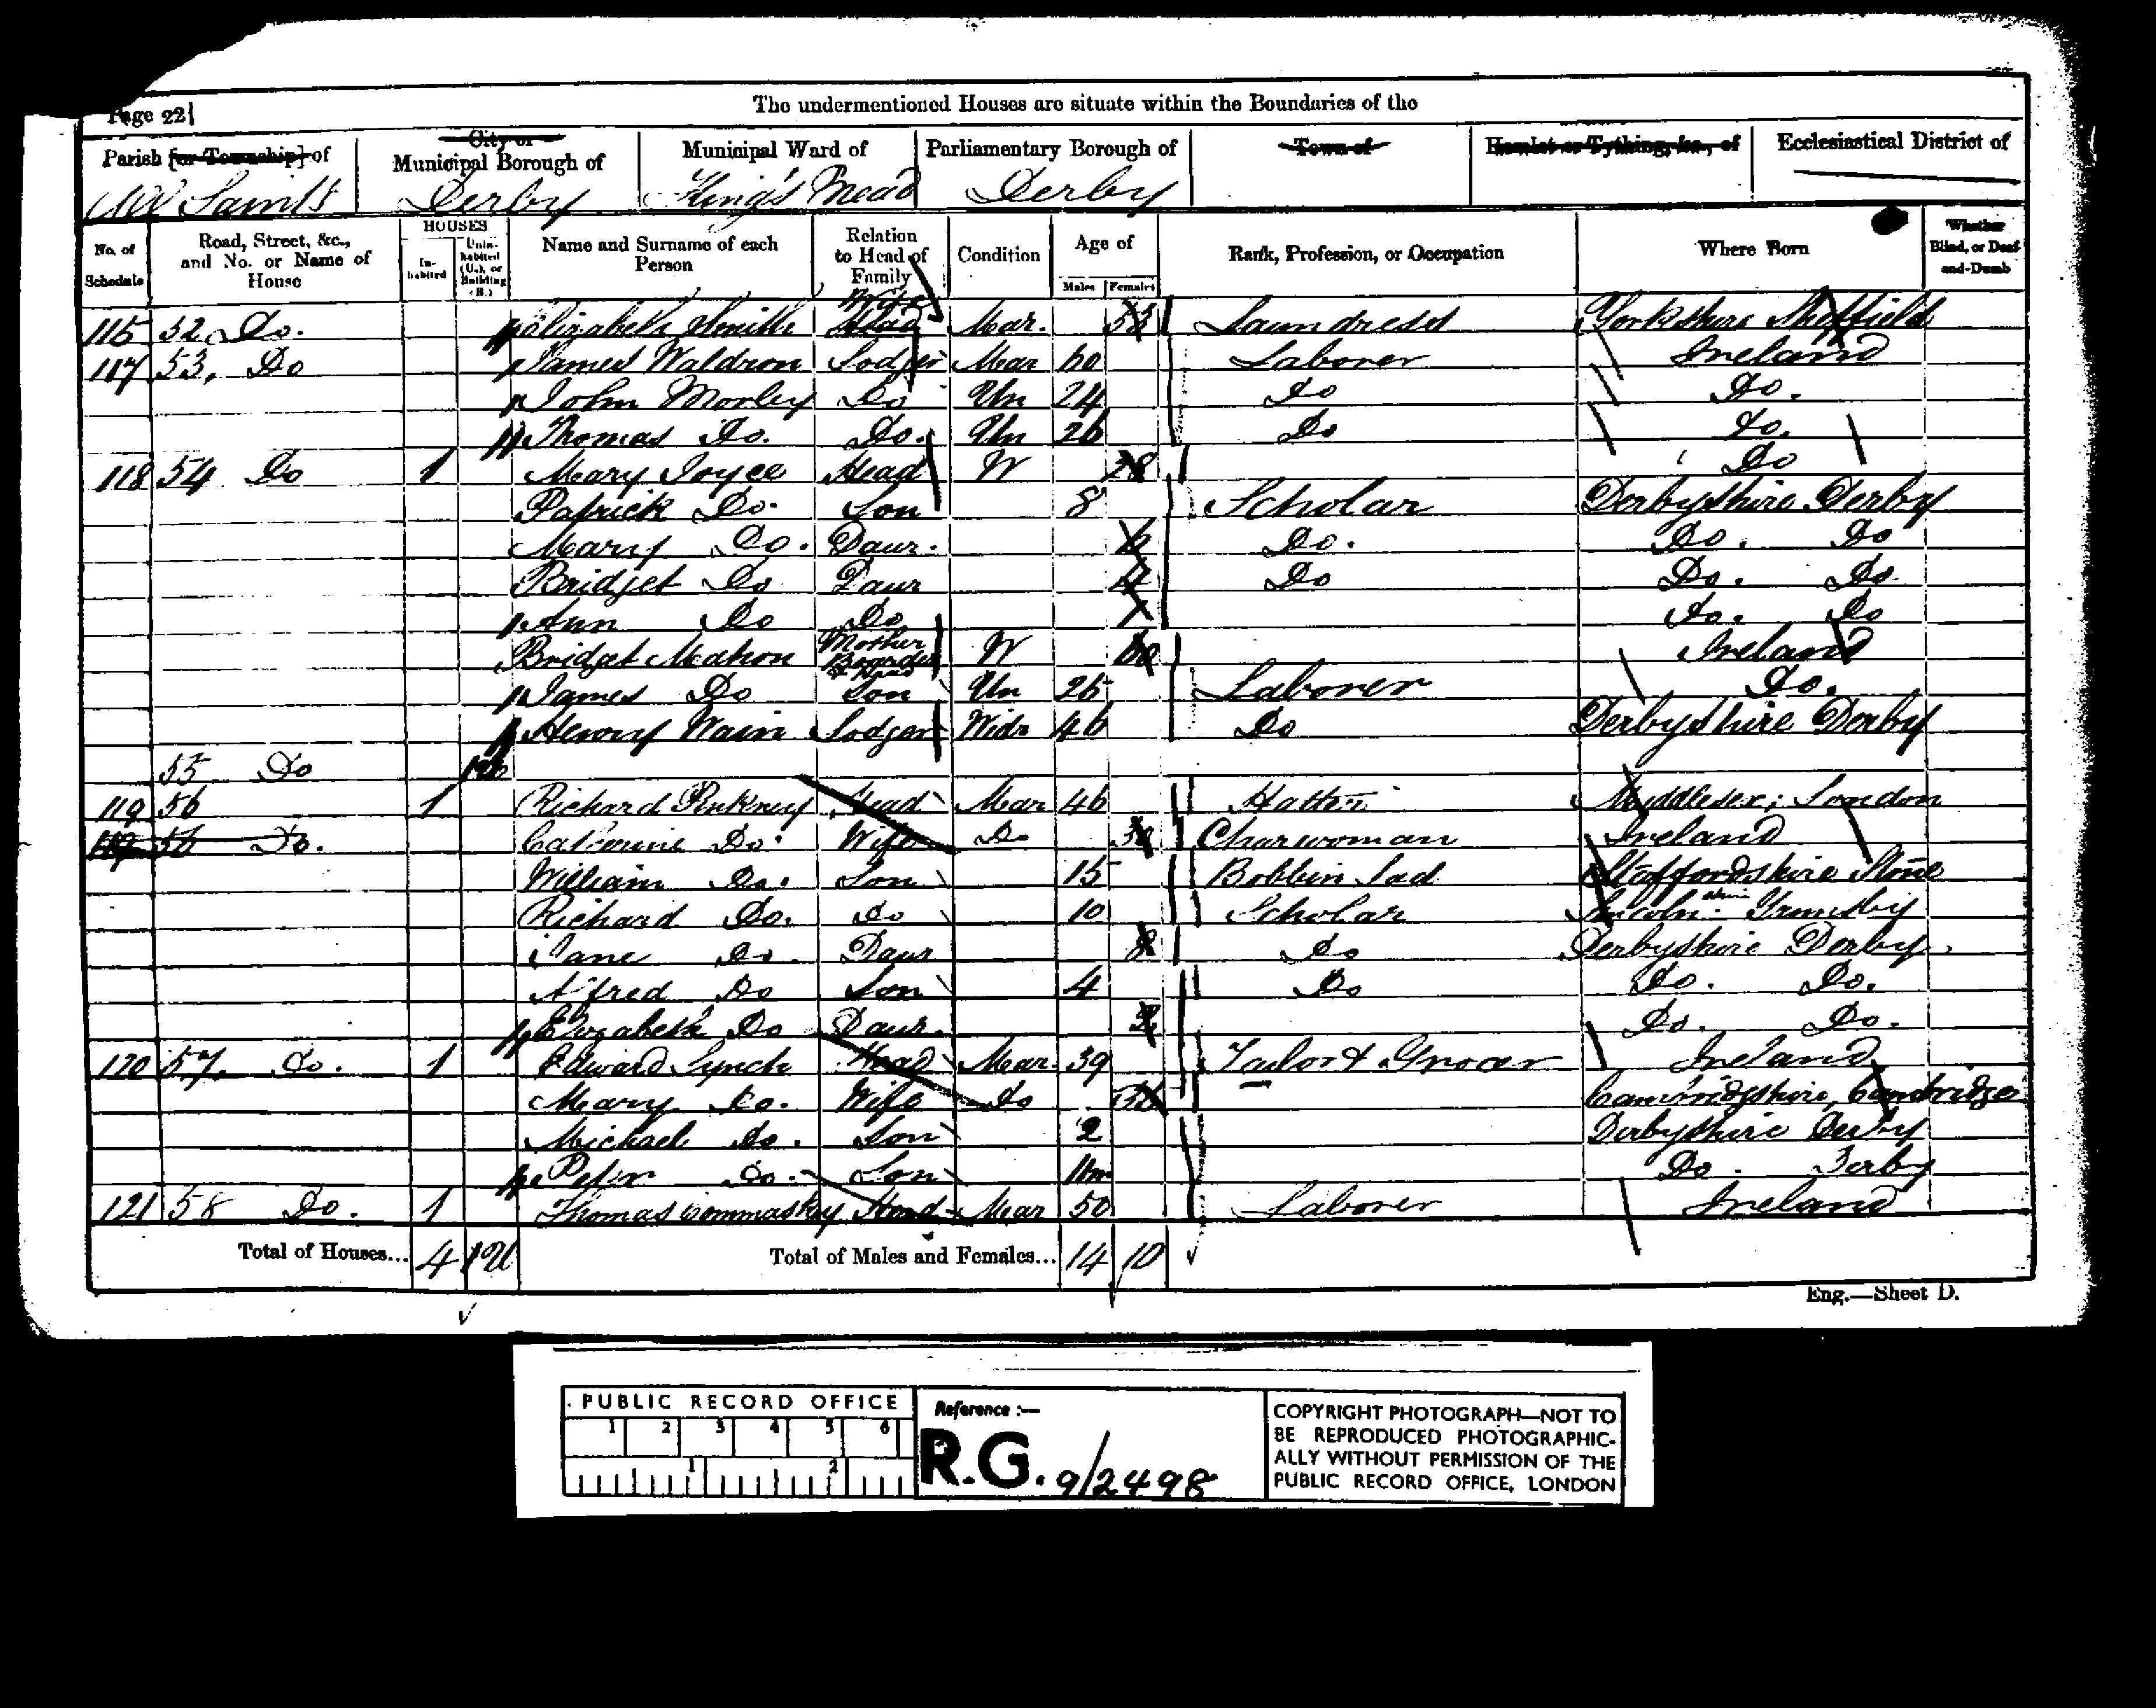 Page 22
The undermentioned Houses are situate within the Boundaries of the
Parish [or Township] of
City or Municipal Borough of
Municipal Ward of
Parliamentary Borough of
Town of
Hamlet or Tything, &c., of
Ecclesiastical District of
All Saints Derby King's Mead Derby
No. of Schedule
Road, Street, &c., and No. or Name of House
HOUSES
In-habited
Unin-habited (U.), or Building (B.)
Name and Surname of each Person
Relation to Head of Family
Condition
Age of
Males Females
Rank, Profession, or Occupation
Where Born
Whether Blind, or Deaf-and-Dumb
Wife
115 52 Do. Elizabeth Smith Head Mar. 53 Laundress Yorkshire Sheffield
117 53, Do James Waldron Lodger Mar 60 Laborer Ireland
John Morley Do Un 24 Do Do.
Thomas Do. Do. Un 26 Do Do.
118 54 Do 1 Mary Joyce Head W 28 Do
Patrick Do. Son 8 Scholar Derbyshire Derby
Mary Do. Daur. 6 Do. Do. Do
Bridget Do Daur 4 Do Do. Do
Ann Do Do Do. Do
Bridget Mahon Mother Boarder & Head W 60 Ireland
James Do Son Un 25 Laborer Do.
Henry Wain Lodger Widr 46 Do Derbyshire Derby
55 Do
119 56 1 Richard Pinkney Head Mar 46 Hatter Middlesex; London
119 56 Do. Catherine Do. Wife Do Charwoman Ireland
William Do. Son 15 Bobbin Lad Staffordshire Stone
Richard Do. Do 10 Scholar Lincolnshire Grimsby
Jane Do. Daur 8 Do Derbyshire Derby
Alfred Do Son 4 Do Do. Do.
Elizabeth Do Daur. 2 Do. Do.
120 57. Do. 1 Edward Lynch Head Mar. 39 Tailor & Grocer Ireland
Mary Do. Wife Do 36 Cambridgshire, Cambridge
Michael Do. Son 2 Derbyshire Derby
Peter Do. Son 11m Do. Derby
121 58 Do. 1 Thomas Commaskey Head Mar 50 Laborer Ireland
Total of Houses... 4 1U Total of Males and Females... 14 10
Eng.—Sheet D.
PUBLIC RECORD OFFICE
1 2 3 4 5 6
1 2
Reference :—
R.G. 9/2498
COPYRIGHT PHOTOGRAPH—NOT TO
BE REPRODUCED PHOTOGRAPHIC-
ALLY WITHOUT PERMISSION OF THE
PUBLIC RECORD OFFICE, LONDON